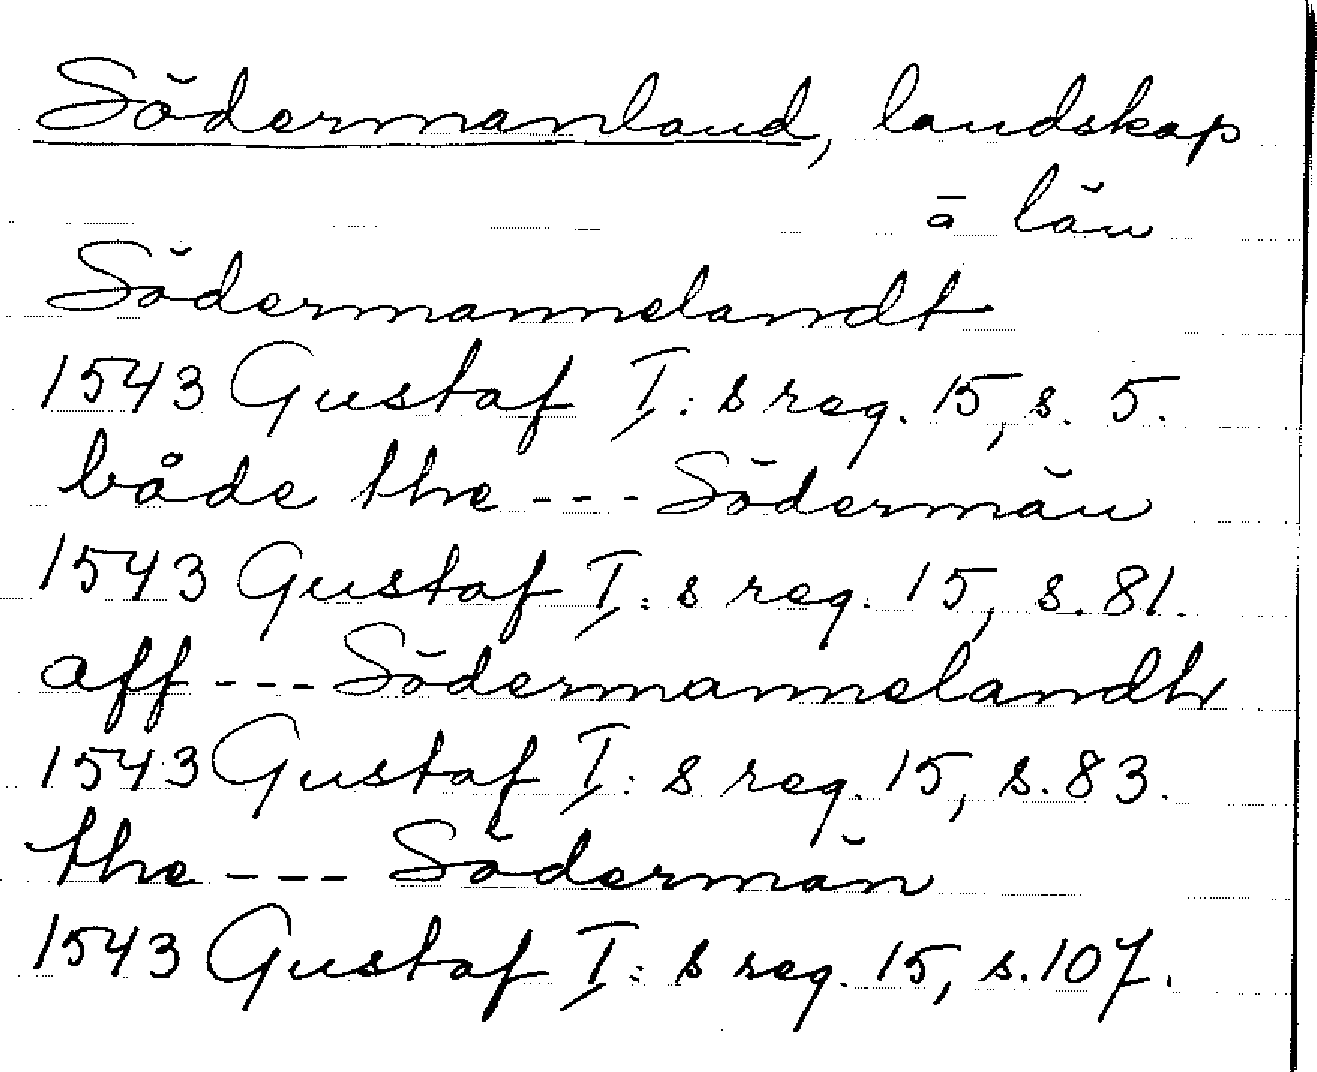 Södermanland, landskap
o län
Södermannelandt
1543 Gustaf I:s reg. 15, s. 5.
både the --- Södermän
1543 Gustaf I:s reg. 15, s. 81.
aff --- Södermannelandh
1543 Gustaf I:s reg. 15, s. 83.
the --- Södermän
1543 Gustaf I:s reg. 15, s. 107.